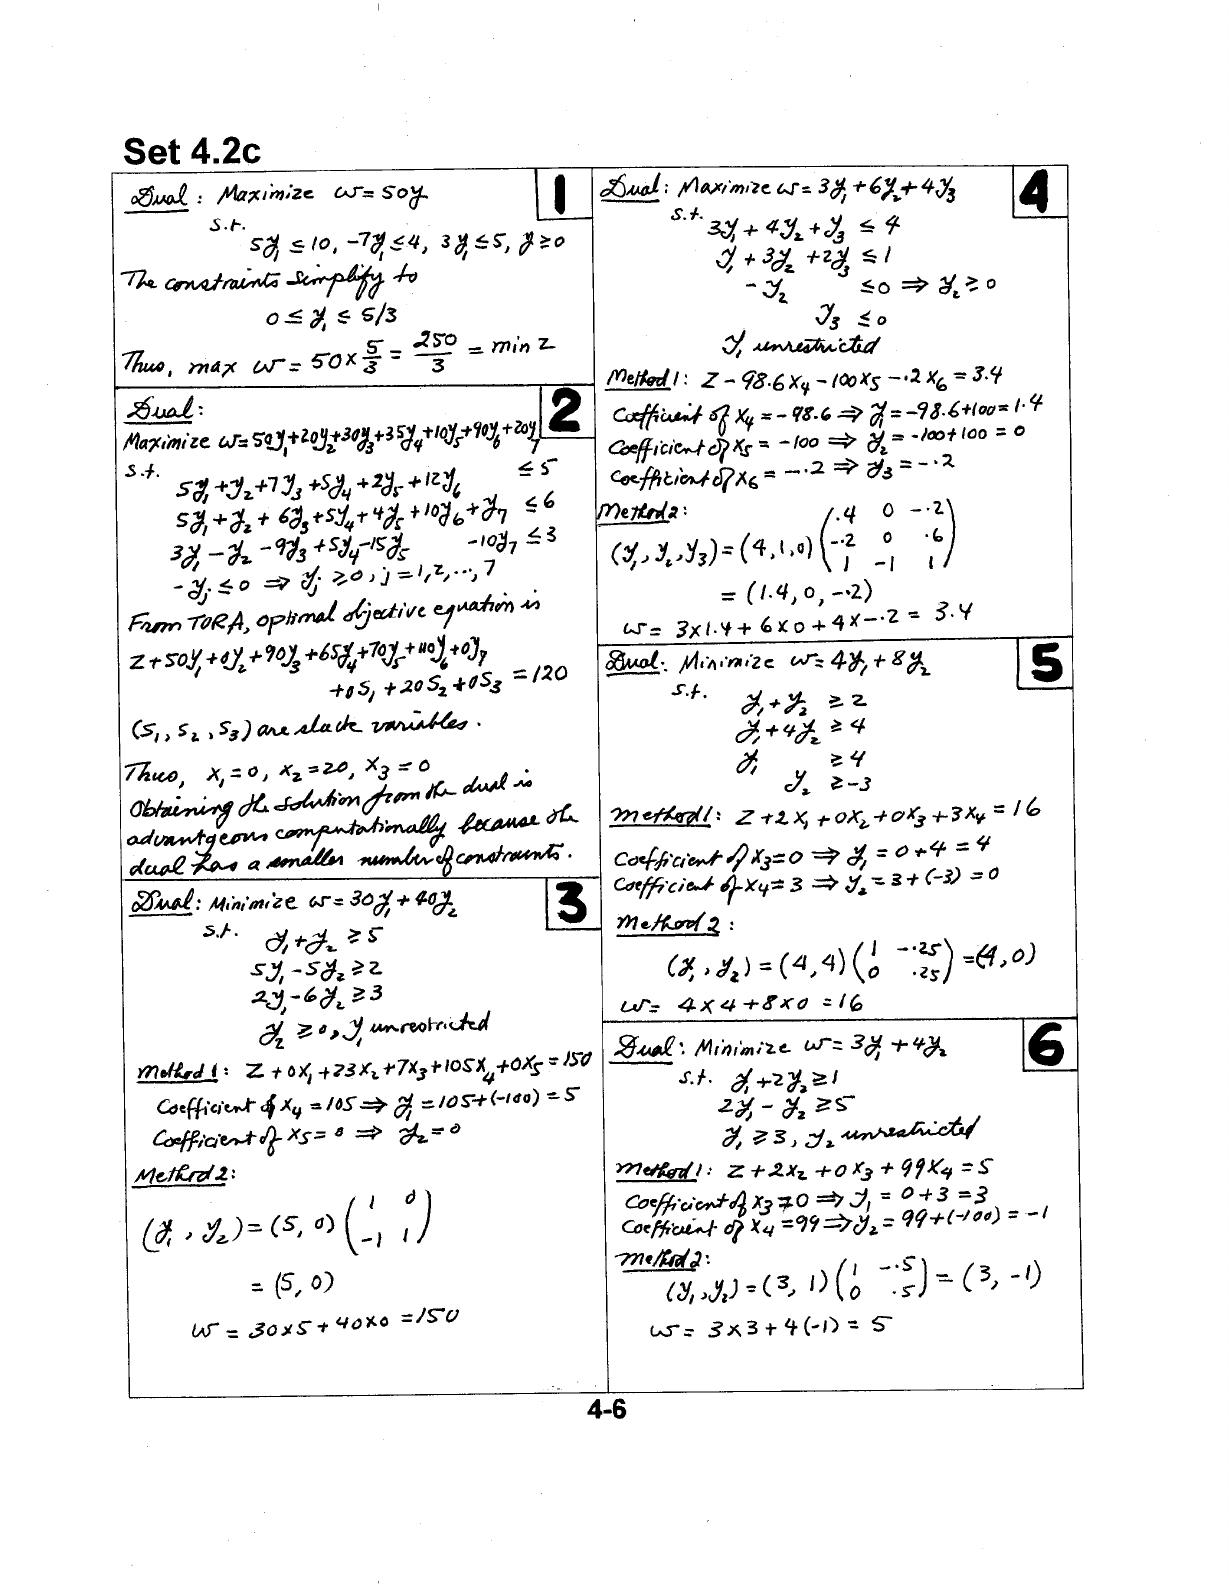 Set 4.2c
1
Dual : Maximize w = 50y
s.t.
5y₁ ≤ 10, -7y₁ ≤ 4, 3y₁ ≤ 5, y ≥ 0
The constraints simplify to
0 ≤ y₁ ≤ 5/3
Thus, max w = 50 x 5/3 = 250/3 = min z
2
Dual :
Maximize w = 50y₁+20y₂+30y₃+35y₄+10y₅+90y₆+20y₇
s.t.
5y₁ + y₂ + 7y₃ + 5y₄ + 2y₅ + 12y₆ ≤ 5
5y₁ + y₂ + 6y₃ + 5y₄ + 4y₅ + 10y₆ + y₇ ≤ 6
3y₁ - y₂ - 9y₃ + 5y₄ - 15y₅ - 10y₇ ≤ 3
-yⱼ ≤ 0 ⇒ yⱼ ≥ 0, j = 1, 2, ..., 7
From TORA, optimal objective equation is
z + 50y₁ + 0y₂ + 90y₃ + 65y₄ + 70y₅ + 110y₆ + 0y₇
+0S₁ + 20S₂ + 0S₃ = 120
(S₁, S₂, S₃) are slack variables.
Thus, x₁ = 0, x₂ = 20, x₃ = 0
Obtaining the solution from the dual is
advantgeous computationally because the
dual has a smaller number of constraints.
3
Dual : Minimize w = 30y₁ + 40y₂
s.t.
y₁ + y₂ ≥ 5
5y₁ - 5y₂ ≥ 2
2y₁ - 6y₂ ≥ 3
y₂ ≥ 0, y₁ unrestricted
Method 1 : z + 0x₁ + 23x₂ + 7x₃ + 105x₄ + 0x₅ = 150
Coefficient of x₄ = 105 ⇒ y₁ = 105+(-100) = 5
Coefficient of x₅ = 0 ⇒ y₂ = 0
Method 2 :
(y₁, y₂) = (5, 0) ( 1 0
-1 1 )
= (5, 0)
w = 30x5 + 40x0 = 150
4
Dual : Maximize w = 3y₁ + 6y₂ + 4y₃
s.t.
3y₁ + 4y₂ + y₃ ≤ 4
y₁ + 3y₂ + 2y₃ ≤ 1
-y₂ ≤ 0 ⇒ y₂ ≥ 0
y₃ ≤ 0
y₁ unrestricted
Method 1 : z - 98.6x₄ - 100x₅ - .2x₆ = 3.4
Coefficient of x₄ = -98.6 ⇒ y₁ = -98.6+100 = 1.4
Coefficient of x₅ = -100 ⇒ y₂ = -100+100 = 0
Coefficient of x₆ = -.2 ⇒ y₃ = -.2
Method 2 :
(y₁, y₂, y₃) = (4, 1, 0) ( .4 0 -.2
-.2 0 .6
1 -1 1 )
= (1.4, 0, -.2)
w = 3x1.4 + 6x0 + 4x-.2 = 3.4
5
Dual : Minimize w = 4y₁ + 8y₂
s.t.
y₁ + y₂ ≥ 2
y₁ + 4y₂ ≥ 4
y₁ ≥ 4
y₂ ≥ -3
Method 1 : z + 2x₁ + 0x₂ + 0x₃ + 3x₄ = 16
Coefficient of x₃ = 0 ⇒ y₁ = 0+4 = 4
Coefficient of x₄ = 3 ⇒ y₂ = 3+(-3) = 0
Method 2 :
(y₁, y₂) = (4, 4) ( 1 -.25
0 .25 ) = (4, 0)
w = 4x4 + 8x0 = 16
6
Dual : Minimize w = 3y₁ + 4y₂
s.t. y₁ + 2y₂ ≥ 1
2y₁ - y₂ ≥ 5
y₁ ≥ 3, y₂ unrestricted
Method 1 : z + 2x₂ + 0x₃ + 99x₄ = 5
Coefficient of x₃ = 0 ⇒ y₁ = 0+3 = 3
Coefficient of x₄ = 99 ⇒ y₂ = 99+(-100) = -1
Method 2 :
(y₁, y₂) = (3, 1) ( 1 -.5
0 .5 ) = (3, -1)
w = 3x3 + 4(-1) = 5
4-6